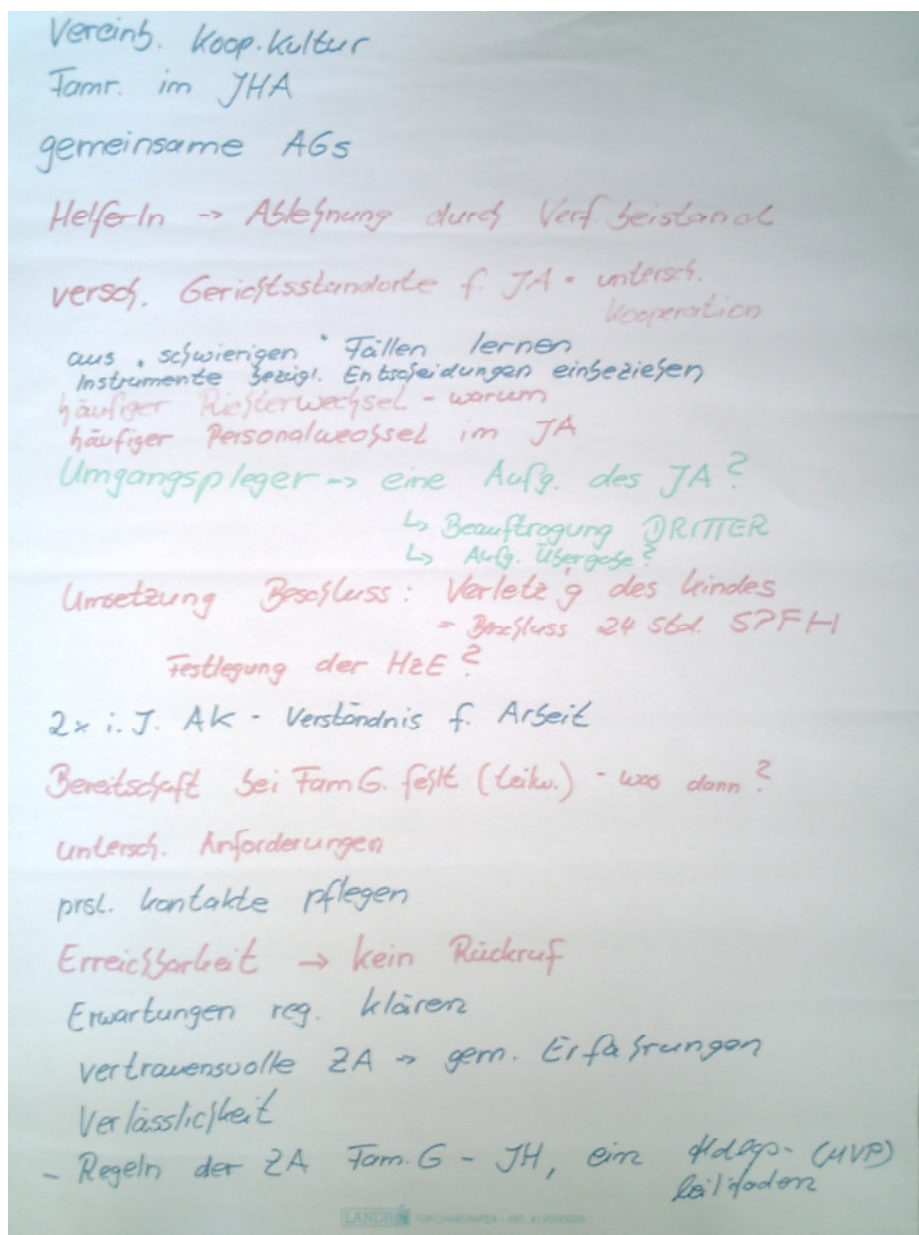 Vereinb. Koop.Kultur
Famr. im JHA
gemeinsame AGs
HelferIn -> Ablehnung durch Verf.beistand
versch. Gerichtsstandorte f. JA = untersch.
Kooperation
aus "schwierigen" Fällen lernen
Instrumente bezügl. Entscheidungen einbeziehen
häufiger Richterwechsel - warum
häufiger Personalwechsel im JA
Umgangspleger -> eine Aufg. des JA?
↳ Beauftragung DRITTER
↳ Aufg. Übergabe?
Umsetzung Beschluss: Verletz'g des Kindes
= Beschluss 24 Std. SPFH
Festlegung der HzE?
2x i. J. AK - Verständnis f. Arbeit
Bereitschaft bei Fam G. fehlt (teilw.) - was dann?
untersch. Anforderungen
prsl. Kontakte pflegen
Erreichbarkeit -> kein Rückruf
Erwartungen reg. klären
vertrauensvolle ZA -> gem. Erfahrungen
Verlässlichkeit
- Regeln der ZA Fam.G - JH, ein Hdlgs- (MVP)
leitfaden
LANDRÉ